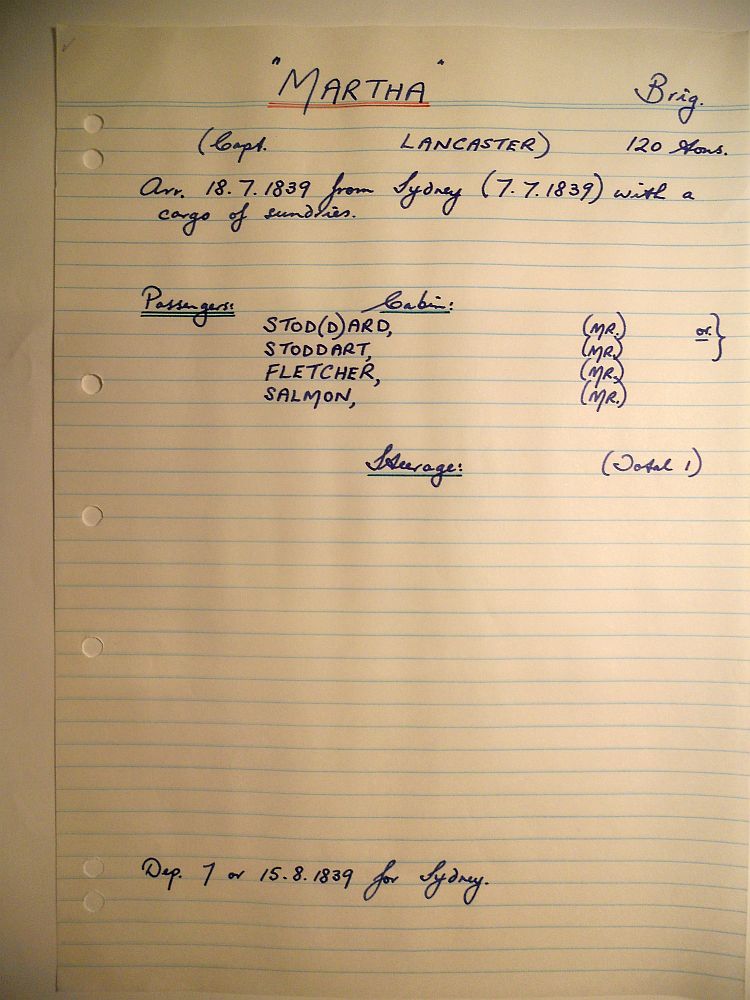 "MARTHA" Brig.
(Capt. LANCASTER) 120 tons.
Arr. 18.7.1839 from Sydney (7.7.1839) with a
cargo of sundries.
Passengers: Cabin:
STOD(D)ARD, (MR.) or }
STODDART, (MR.)
FLETCHER, (MR.)
SALMON, (MR.)
Steerage: (Total 1)
Dep. 7 or 15.8.1839 for Sydney.